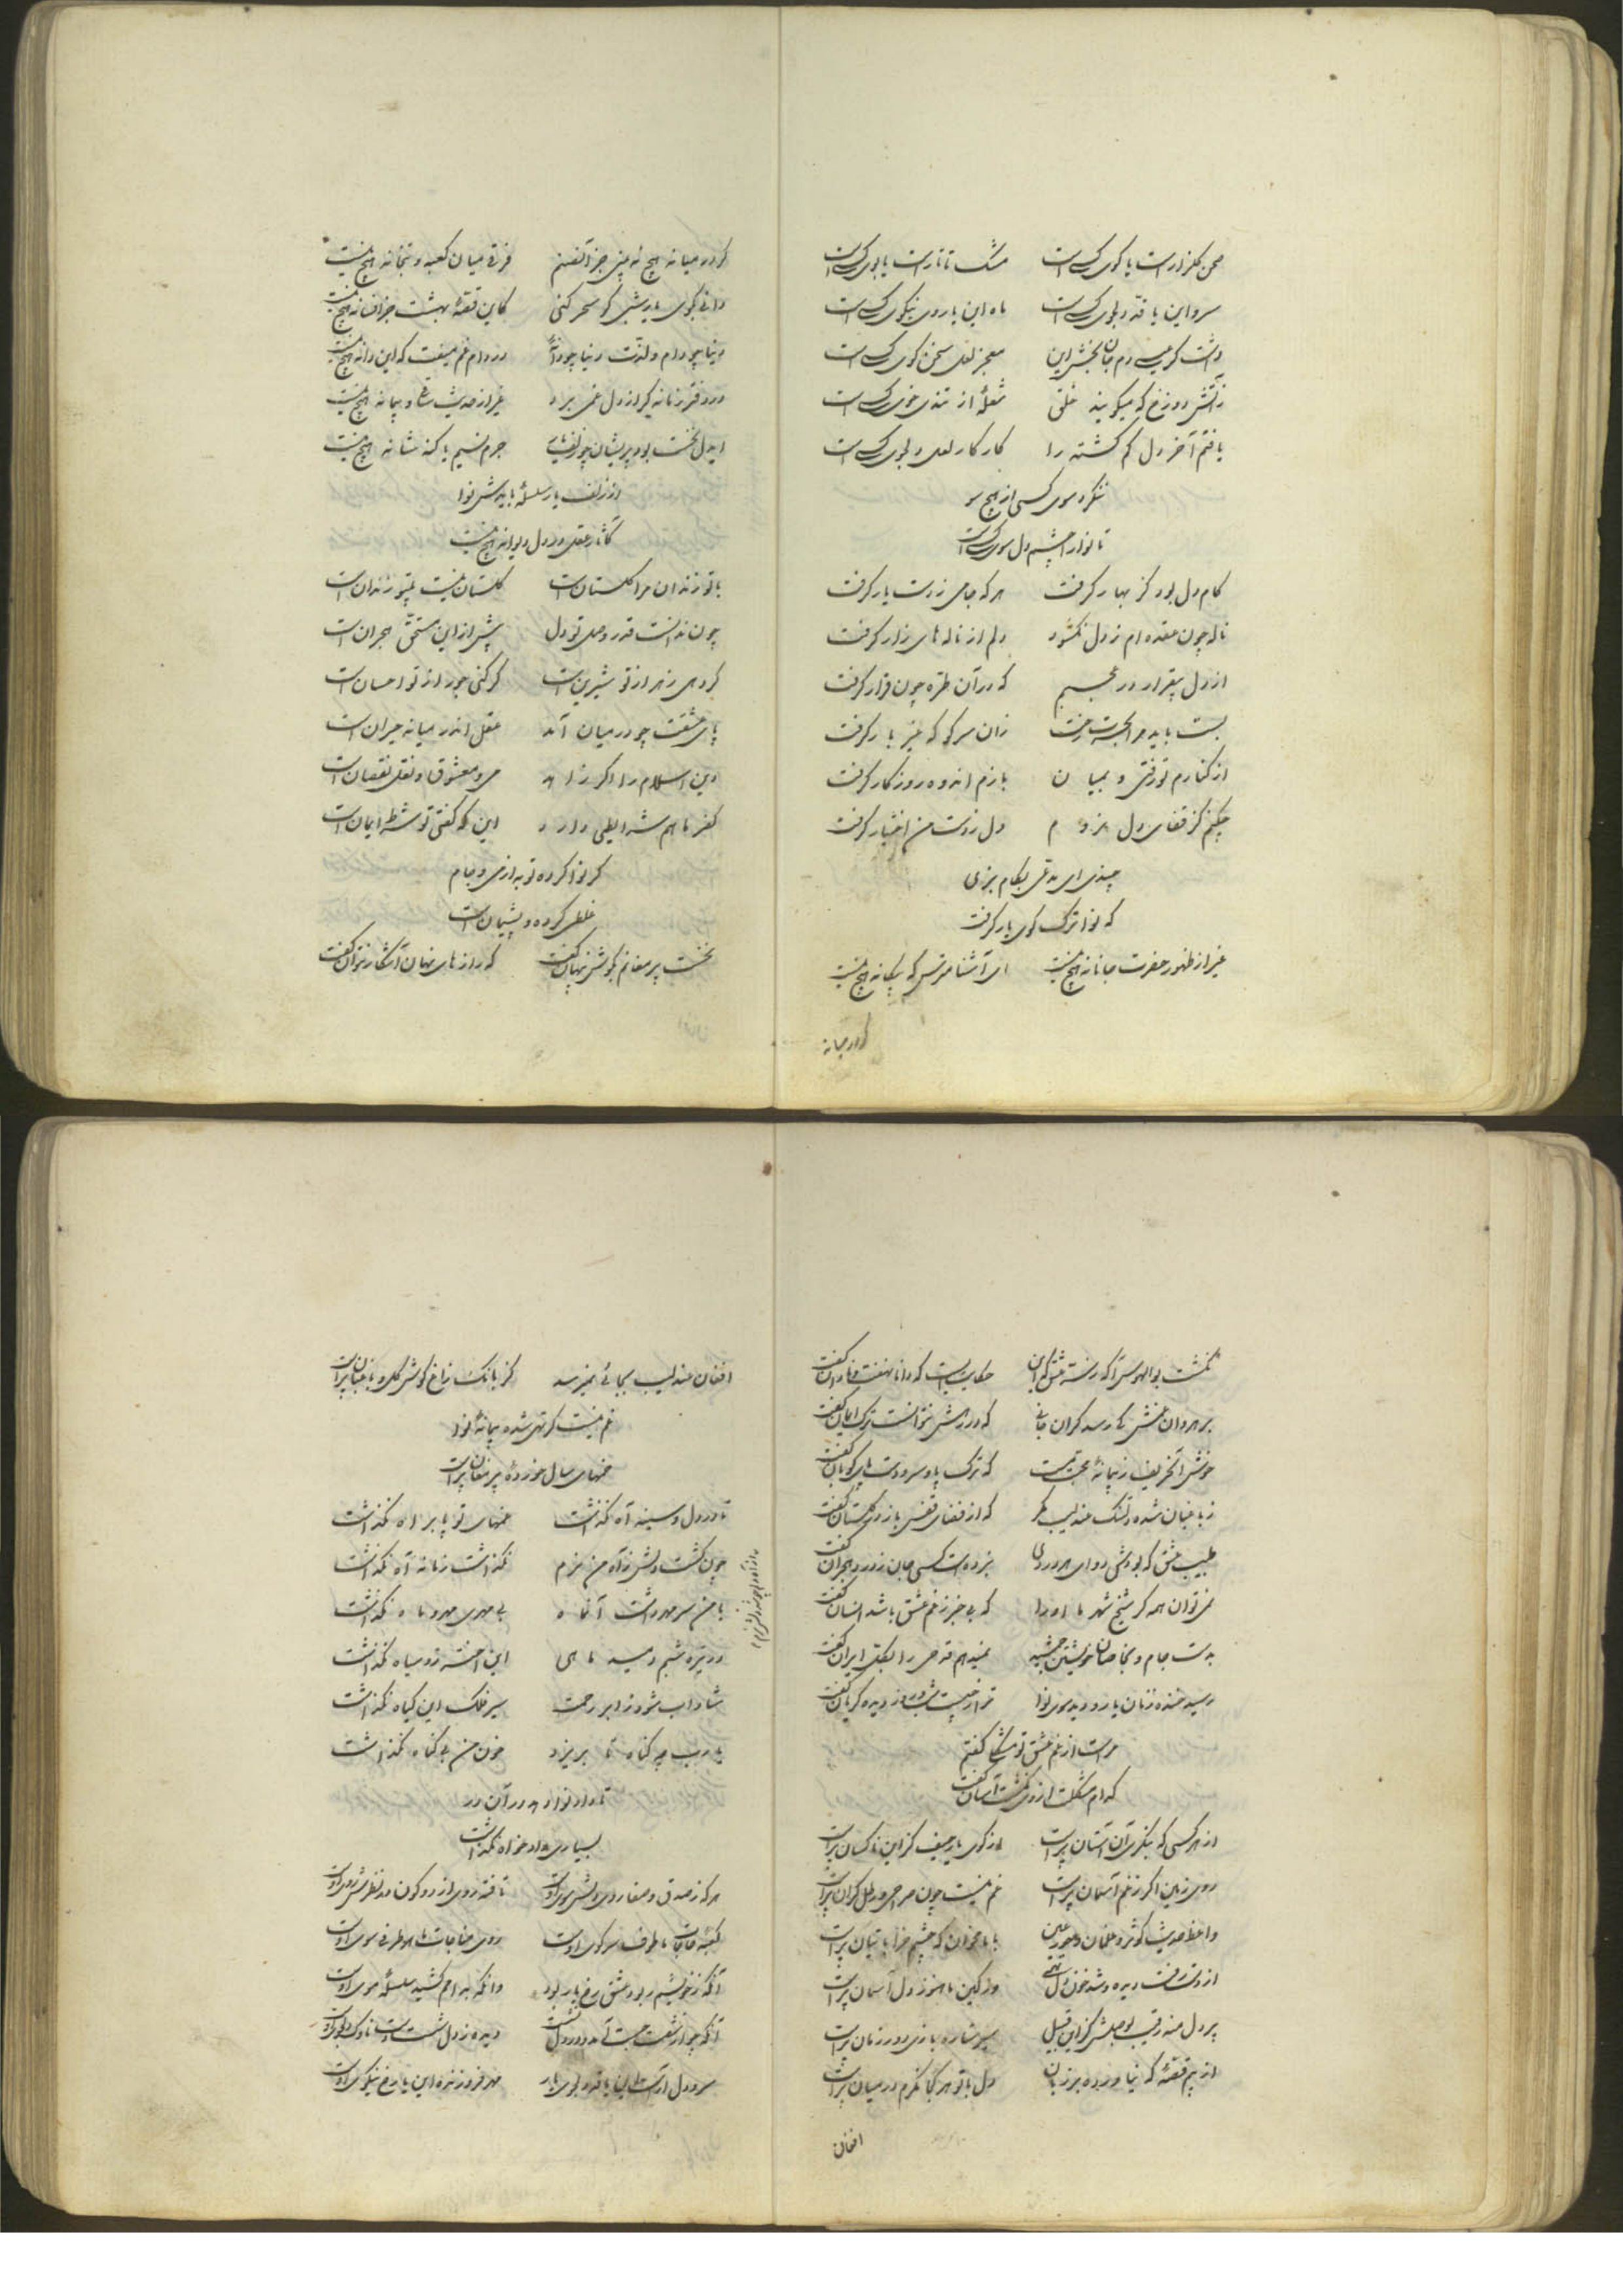 صحن گلزار است یا کوی کسی است مشک تاتار است یا بوی کسی است
سرو این یا قد دلجوی کسی است ماه این یا روی نیکوی کسی است
داشت گر عیسی دم جان بخش این معجز لعل سخن گوی کسی است
زآتش دوزخ که میگویند خلق شعلهٔ از تندی خوی کسی است
یافتم آخر دل گم گشته را کار کار لعل دلجوی کسی است
ننگرد سوی کسی از هیچ سو
تا نوا را چشم دل سوی کسی است
کام دل بود کز بهار گرفت هر که جامی ز دست یار گرفت
ناله چون عقده ام ز دل نگشود دلم از ناله های زار گرفت
از دل بیقرار در عجبم که در آن طره چون قرار گرفت
بست باید مرا بحسرت رخت زان سر کو که غیر بار گرفت
از کنارم تو رفتی و بمیان بازم اندوه روزگار گرفت
چکنم گر قفای دل نروم دل ز دست من اختیار گرفت
چیدی ای مدعی بکام بزی
که نوا ترک کوی یار گرفت
غیر از ظهور حضرت جانانه هیچ نیست ای آشنا مترس که بیگانه هیچ نیست
گر در میانه
گر در میانه هیچ نه بینی جز آن صنم فرقی میان کعبه و بتخانه هیچ نیست
دانی بکوی یار شبی گر سحر کنی کاین قصهٔ بهشت جز افسانه هیچ نیست
دنیا چو دام و لذت دنیا چو دانهٔ در دام غم میفت که این دانه هیچ نیست
در دفتر زمانه که از دل غمی برد غیر از حدیث ساقی و پیمانه هیچ نیست
ای دل نخست بود پریشان چو زلف یار جرم نسیم یا گنه شانه هیچ نیست
از زلف یار سلسلهٔ بایدش نوا
کآثار عقل در دل دیوانه هیچ نیست
با تو زندان مرا گلستان است گلستان نیست بیتو زندان است
چون ندانست قدر وصل تو دل پیش از این مستحق هجران است
گر دهی زهر از تو شیرین است گر کنی جور از تو احسان است
پای عشقت چو در میان آمد عقل اندر میانه حیران است
دین اسلام را اگر زاهد می و معشوق و نقل نقصان است
کفر ما هم شرایطی دارد این که گفتی تو شرط ایمان است
گر نوا کرده توبه از می و جام
غلطی کرده و پشیمان است
نخست پیر مغانم بگوش پنهان گفت که رازهای نهان آشکار نتوان گفت
نگشت بوالهوس آگه ز سر عشق که این حکایتیست که دانا نهفت و نادان گفت
برهروان غمش کی رسد گران جانی که در رهش نتوانست ترک ایمان گفت
خوش آن حریف ز پیمانهٔ محبت مست که ترک پا و سر و دست پای کوبان گفت
ز باغبان شده دلتنگ عندلیب مگر که از فضای قفس باز در گلستان گفت
طبیب عشق که بودش دوای هر دردی نبرده است کسی جان ز درد هجران گفت
نمی توان همه گر شیخ شهر ما او را که بی خبر ز غم عشق باشد انسان گفت
بدست جام و بخاصان خویشتن جمشید نمیدهم قدحی را بملک ایران گفت
رسید خنده زنان یار و دید سوی نوا ترا ز چیست شب و روز دیده گریان گفت
مراست از غم عشق تو مشکلی گفتم
کدام مشکلت از وی نگشت آسان گفت
از هر کسی که بنگری آن آستان پر است از کوی یار حیف کز این ناکسان پر است
روی زمین اگر ز غم آسمان پر است غم نیست چون صراحی و رطل گران پر است
واعظ حدیث کوثر و غلمان و حور عین با ما مخوان که چشم خراباتیان پر است
از دست رفت دیده و شد خون دل تهی وز کین ما هنوز دل آسمان پر است
بر دل منه رقیب بوصلش کز این قبیل سیر ستاره بازی دور زمان پر است
از بیم قصهٔ که نیاورده بر زبان دل با تو هر کجا نگرم در میان پر است
افغان
افغان عندلیب بجائی نمیرسد کز بانگ زاغ گوش گل و باغبان پر است
غم نیست گر تهی شده پیمانهٔ نوا
خمهای سال خوردهٔ پیر مغان پر است
تا در دل و سینه آه نگذاشت غمهای تو پا براه نگذاشت
چون گشت دلش ز آه من نرم نگذاشت زمانه آه نگذاشت
با من سر مهر داشت آن ماه بی مهری مهر و ماه نگذاشت
در تیره شبم دمید ماهی این اختر رو سیاه نگذاشت
شاداب شود ز ابر رحمت سیر فلک این گیاه نگذاشت
یارب چه گناه تا بریزد خون من بی گناه نگذاشت
تا داد نوا دهد در آن در
بسیاری دادخواه نگذاشت
هر که ز صدق و صفا روی دلش سوی اوست تافته روی از دو کون مد نظرش روی اوست
کعبهٔ حاجات ما طوف سر کوی اوست روی مناجات ما هر طرفی سوی اوست
آنکه ز خویشم ربود عشق رخ یار بود وانکه بدامم کشید سلسلهٔ موی اوست
آنکه چو از شست جست آمد و در دل نشست دیده ز دل شست دست ناوک دلجوی اوست
سرو دل آراست این یا قد دلجوی یار مهر فروزنده این یا رخ نیکوی اوست